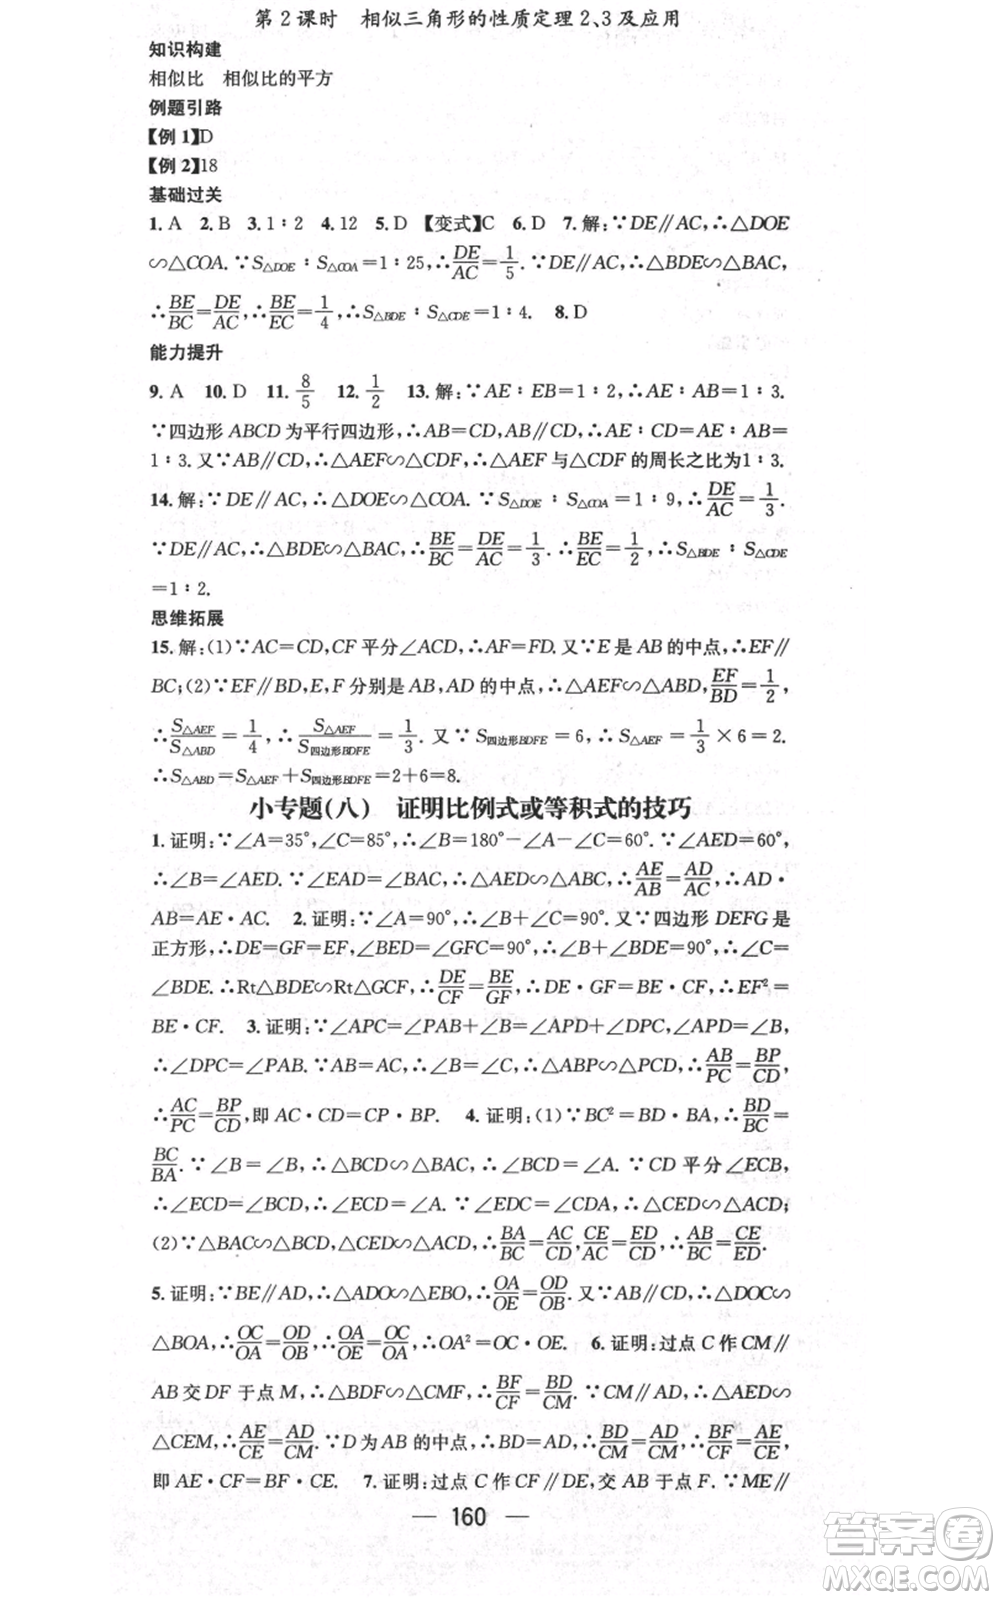 第 2 课时　相似三角形的性质定理 2、3 及应用
知识构建
相似比　相似比的平方
例题引路
【例 1】D
【例 2】18
基础过关
1. A　2. B　3. 1∶2　4. 12　5. D　【变式】C　6. D　7. 解：∵DE∥AC，∴△DOE
∽△COA. ∵S△DOE∶S△COA=1∶25，∴DE/AC=1/5. ∵DE∥AC，∴△BDE∽△BAC，
∴BE/BC=DE/AC，∴BE/EC=1/4，∴S△BDE∶S△CDE=1∶4.　8. D
能力提升
9. A　10. D　11. 8/5　12. 1/2　13. 解：∵AE∶EB=1∶2，∴AE∶AB=1∶3.
∵四边形 ABCD 为平行四边形，∴AB=CD，AB∥CD，∴AE∶CD=AE∶AB=
1∶3. 又∵AB∥CD，∴△AEF∽△CDF，∴△AEF 与△CDF 的周长之比为 1∶3.
14. 解：∵DE∥AC，∴△DOE∽△COA. ∵S△DOE∶S△COA=1∶9，∴DE/AC=1/3.
∵DE∥AC，∴△BDE∽△BAC，∴BE/BC=DE/AC=1/3. ∴BE/EC=1/2，∴S△BDE∶S△CDE
=1∶2.
思维拓展
15. 解：(1)∵AC=CD，CF 平分∠ACD，∴AF=FD. 又∵E 是 AB 的中点，∴EF∥
BC；(2)∵EF∥BD，E，F 分别是 AB，AD 的中点，∴△AEF∽△ABD，EF/BD=1/2，
∴S△AEF/S△ABD=1/4，∴S△AEF/S四边形BDFE=1/3. 又∵S四边形BDFE=6，∴S△AEF=1/3×6=2.
∴S△ABD=S△AEF+S四边形BDFE=2+6=8.
小专题(八)　证明比例式或等积式的技巧
1. 证明：∵∠A=35°，∠C=85°，∴∠B=180°-∠A-∠C=60°. ∵∠AED=60°，
∴∠B=∠AED. ∵∠EAD=∠BAC，∴△AED∽△ABC，∴AE/AB=AD/AC，∴AD·
AB=AE·AC.　2. 证明：∵∠A=90°，∴∠B+∠C=90°. 又∵四边形 DEFG 是
正方形，∴DE=GF=EF，∠BED=∠GFC=90°，∴∠B+∠BDE=90°，∴∠C=
∠BDE. ∴Rt△BDE∽Rt△GCF，∴DE/CF=BE/GF，∴DE·GF=BE·CF，∴EF²=
BE·CF.　3. 证明：∵∠APC=∠PAB+∠B=∠APD+∠DPC，∠APD=∠B，
∴∠DPC=∠PAB. ∵AB=AC，∴∠B=∠C，∴△ABP∽△PCD，∴AB/PC=BP/CD，
∴AC/PC=BP/CD，即 AC·CD=CP·BP.　4. 证明：(1)∵BC²=BD·BA，∴BD/BC=
BC/BA. ∵∠B=∠B，∴△BCD∽△BAC，∴∠BCD=∠A. ∵CD 平分∠ECB，
∴∠ECD=∠BCD，∴∠ECD=∠A. ∵∠EDC=∠CDA，∴△CED∽△ACD；
(2)∵△BAC∽△BCD，△CED∽△ACD，∴BA/BC=AC/CD，CE/AC=ED/CD，∴AB/BC=CE/ED.
5. 证明：∵BE∥AD，∴△ADO∽△EBO，∴OA/OE=OD/OB. 又∵AB∥CD，∴△DOC∽
△BOA，∴OC/OA=OD/OB，∴OA/OE=OC/OA，∴OA²=OC·OE.　6. 证明：过点 C 作 CM∥
AB 交 DF 于点 M，∴△BDF∽△CMF，∴BF/CF=BD/CM. ∵CM∥AD，∴△AED∽
△CEM，∴AE/CE=AD/CM. ∵D 为 AB 的中点，∴BD=AD，∴BD/CM=AD/CM，∴BF/CF=AE/CE，
即 AE·CF=BF·CE.　7. 证明：过点 C 作 CF∥DE，交 AB 于点 F. ∵ME∥
— 160 —
答案卷
MXQE.COM